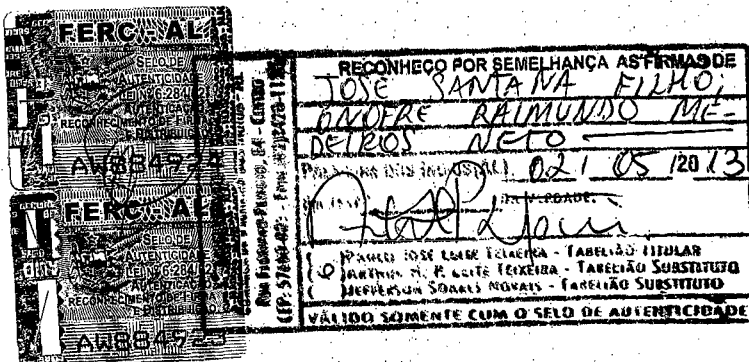 FERC - AL
SELO DE
AUTENTICIDADE
LEI Nº 6.284/02
AUTENTICAÇÃO
RECONHECIMENTO DE FIRMA
E DISTRIBUIÇÃO
AW88492
FERC - AL
SELO DE
AUTENTICIDADE
LEI Nº 6.284/02
AUTENTICAÇÃO
RECONHECIMENTO DE FIRMA
E DISTRIBUIÇÃO
AW884923
- CENTRO
CEP: 57
RECONHEÇO POR SEMELHANÇA AS FIRMAS DE
JOSÉ SANTANA FILHO,
ONOFRE RAIMUNDO ME-
DEIROS NETO
02 / 05 /20 13
JOSÉ LEITE TEIXEIRA - TABELIÃO TITULAR
LEITE TEIXEIRA - TABELIÃO SUBSTITUTO
JEFFERSON SOARES NOVAIS - TABELIÃO SUBSTITUTO
VÁLIDO SOMENTE COM O SELO DE AUTENTICIDADE